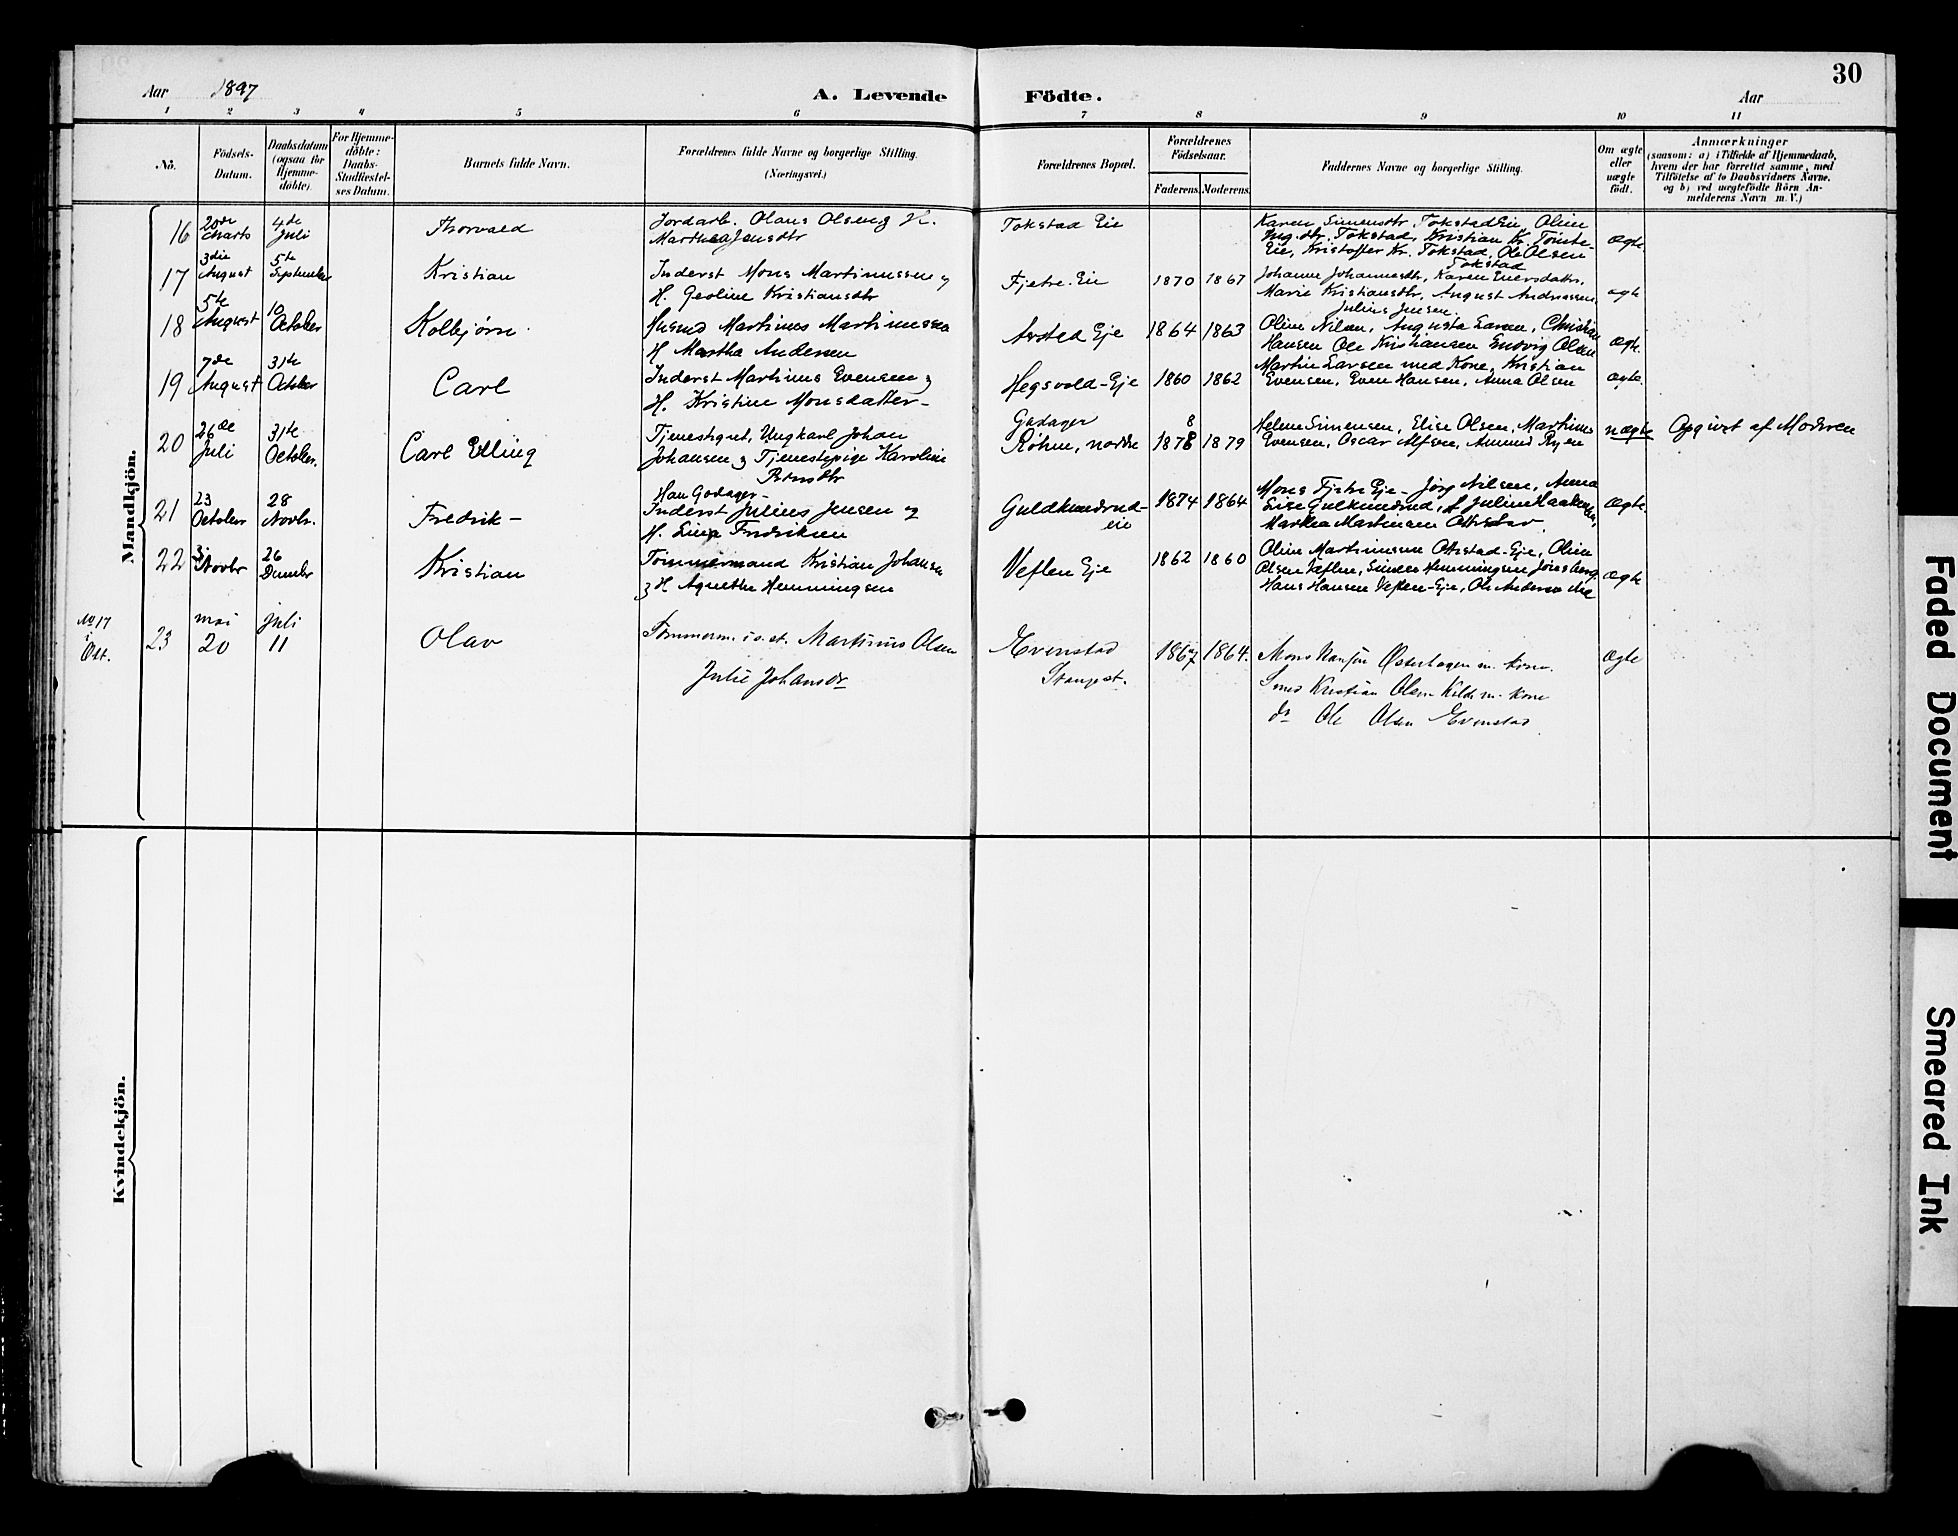 30
Aar 1897
A. Levende Födte.
Aar
1 2 3 4 5 6 7 8 9 10 11
No.
Födsels-Datum.
Daabsdatum (ogsaa for Hjemme-döbte).
For Hjemme-döbte: Daabs-Stadfæstel-ses Datum.
Barnets fulde Navn.
Forældrenes fulde Navne og borgerlige Stilling.
(Næringsvei.)
Forældrenes Bopæl.
Forældrenes Födselsaar.
Faderens. Moderens.
Faddernes Navne og borgerlige Stilling.
Om ægte eller uægte födt.
Anmærkninger
(saasom: a) i Tilfælde af Hjemmedaab,
hvem der har forrettet samme, med
Tilföielse af to Daabsvidners Navne,
og b) ved uægtefödte Börn An-
melderens Navn m. V.)
Mandkjön.
16 20de Marts 4de Juli Thorvald
Jordarb. Olaus Olsen og H.
Marthea Jensdtr
Tokstad Eie
Karen Simensdtr. Tokstad Eie, Oline
Ing.dtr. Tokstad, Kristian Kr. Tomte-
Eie, Kristoffer Kr. Tokstad, Ole Olsen
Tokstad
Ægte
17 3die August 5te September Kristian
Inderst Mons Martinussen og
H. Geoline Kristiansdtr
Fjetre. Eie 1870 1867
Johanne Johannesdtr, Karen Eversdatter,
Marie Kristiansdtr, August Andreassen,
Julius Jensen.
ægte
18 5te August 10 October Kolbjørn
Husmd Martinus Martinussen
H. Martha Andersen
Arstad Eje 1864 1863
Oline Nilsen, Augusta Larsen, Christian
Hansen Ole Kristiansen Ludvig Olsen
Ægte.
19 7de August 31te October Carl
Inderst Martinus Evensen og
H. Kristine Monsdatter-
Hegsvold-Eje 1860 1862
Martin Larsen med Kone, Kristian
Evensen, Even Hansen, Anna Olsen
Ægte.
20 26de Juli 31te October. Carl Elling
Tjenestegut, Ungkarl Johan
Johansen og Tjenestepige Karoline
Berntsdtr
Han Godager-
Godager
Röhne, nordre 8 1878 1879
Helene Simensen, Elise Olsen, Martinus
Evensen, Oscar Alfsen, Amund Ryen
uægte Opgivet af Moderen
21 23 October 28 Novbr. Fredrik-
Inderst Julius Jensen og
H. Lina Fredriksen
Guldkundrud-
eie 1874 1864
Mons Fjetre Eje- Jörg Nilsen, Anna
Lise Gulkundrud, Julius Haakensen,
Marthea Martinsen Ottestad.
Ægte.
22 3 Novbr 26 Decmbr Kristian
Tömmermand Kristian Johansen
og H. Agnethe Hemmingsen
Veflen Eje 1862 1860
Oline Martinusen Ottestad-Eje, Oline
Olsen Veflen, Simen Hemmingsen Jönsberg,
Hans Hansen Veflen-Eje, Ole Andersen
Ægte
No 17
i
Ott.
23 mai 20 juli 11 Olav
Tømmerm. i s. st. Martinius Olsen
Julie Johansdr
Evenstad
Stangest. 1867 1864.
Mons Hansen Østerhagen m. kone.
Smed Kristian Olsen Kilde m. kone
do Ole Olsen Evenstad
Ægte
Kvindekjön.
Faded Document
Smeared Ink